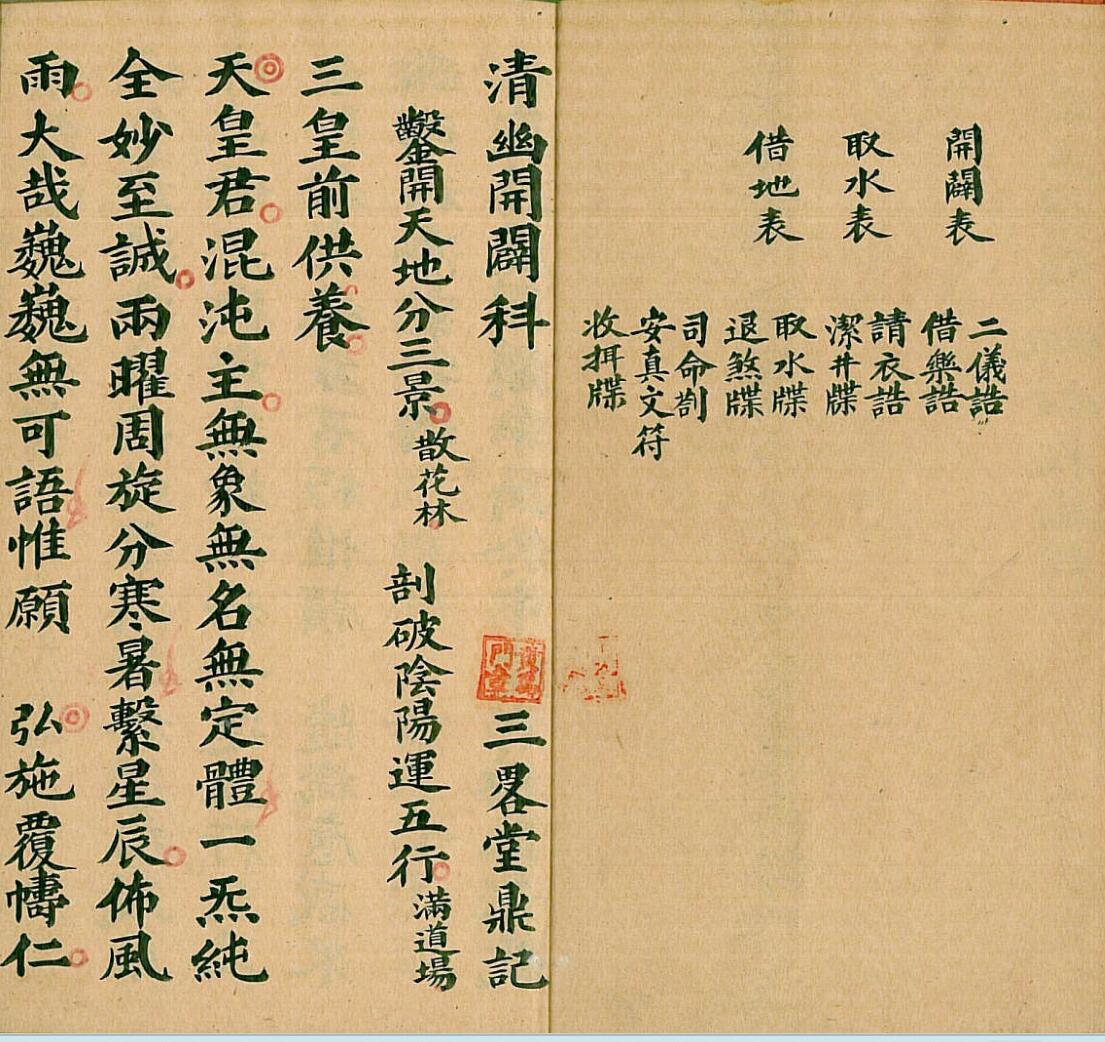 開闢表
取水表
借地表
二儀誥
借樂誥
請衣誥
潔井牒
取水牒
退煞牒
司命劄
安真文符
收捐牒
清幽開闢科 三畧堂鼎記
鑿開天地分三景散花林 剖破陰陽運五行滿道場
三皇前供養
天皇君混沌主無象無名無定體一炁純
全妙至誠兩曜周旋分寒暑繫星辰佈風
雨大哉巍巍無可語惟願 弘施覆幬仁